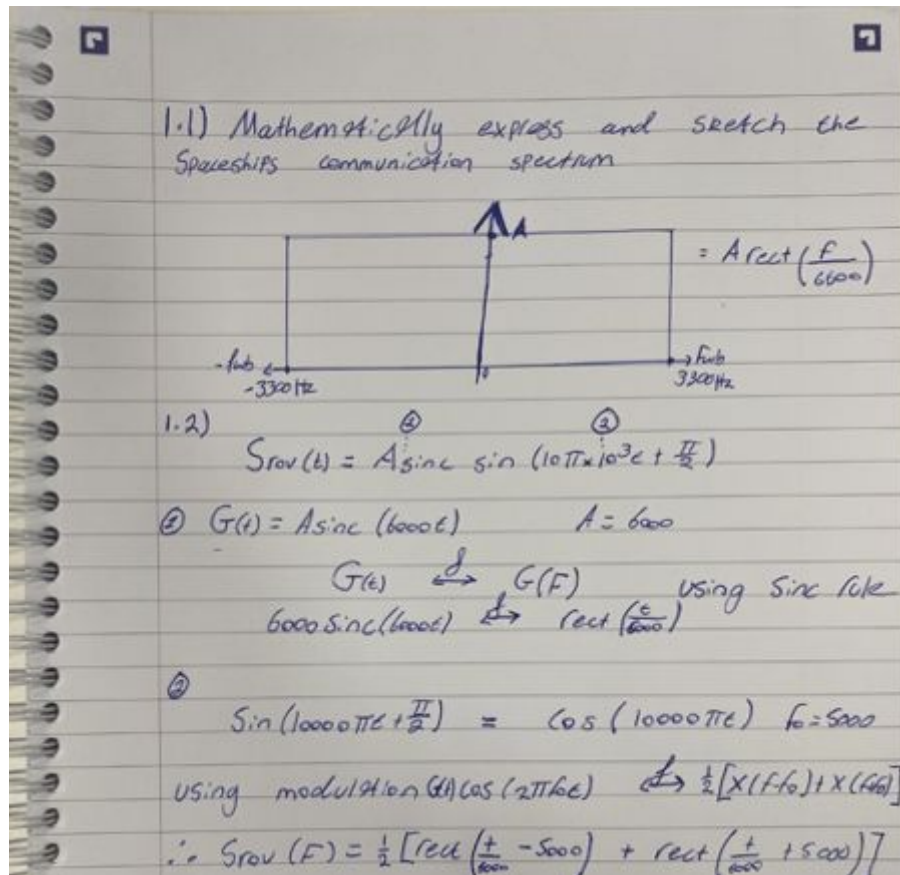 1.1) Mathematically express and sketch the
Spaceships communication spectrum
A
= A rect(f/6600)
-fwb
-3300Hz
0
fwb
3300Hz
1.2)
① ②
Srov(t) = A sinc sin (10π×10³t + π/2)
① G(t) = A sinc (6000t) A = 6000
G(t) ⟷ G(F) using Sinc rule
6000 sinc(6000t) ⟷ rect(t/6000)
②
Sin(10000πt + π/2) = Cos(10000πt) fo = 5000
using modulation G(t)cos(2πfot) ⟷ ½[X(f-fo)+X(f+fo)]
∴ Srov(F) = ½[rect(t/6000 - 5000) + rect(t/6000 + 5000)]